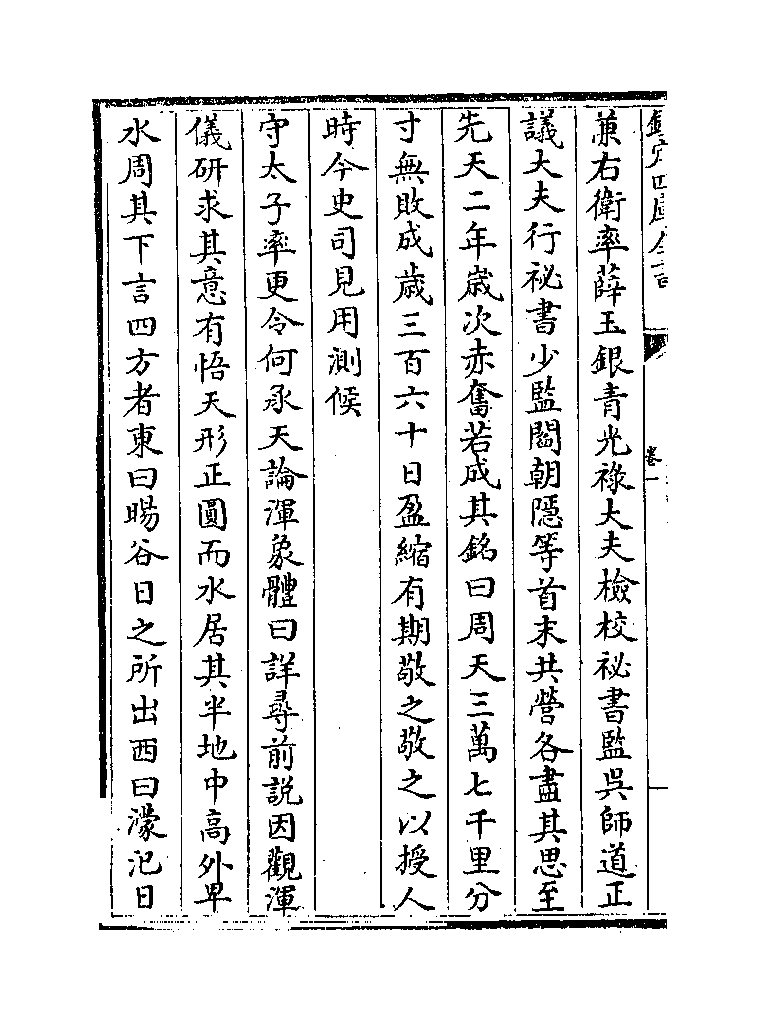 欽定四庫全書
卷一
兼右衛率薛玉銀青光祿大夫檢校祕書監吳師道正
議大夫行祕書少監閻朝隱等首末共營各盡其思至
先天二年歳次赤奮若成其銘曰周天三萬七千里分
寸無敗成歲三百六十日盈縮有期敬之敬之以授人
時今史司見用測候
守太子率更令何承天論渾象體曰詳尋前説因觀渾
儀研求其意有悟天形正圓而水居其半地中高外卑
水周其下言四方者東曰暘谷日之所出西曰濛汜日